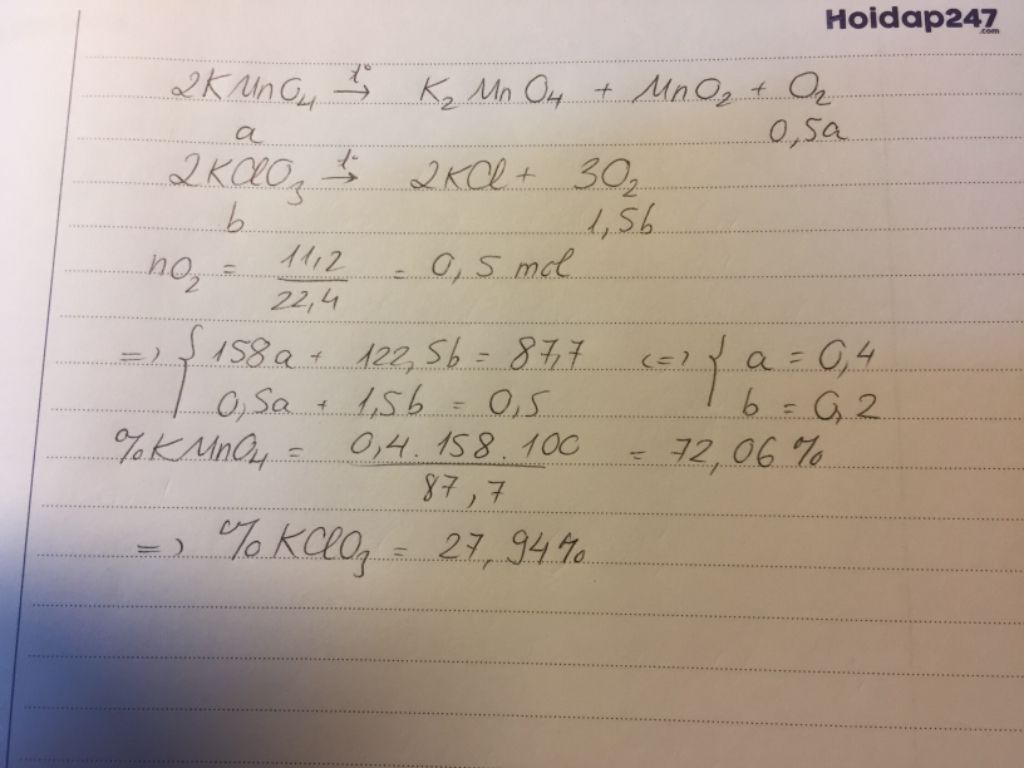 Hoidap247
.com
2KMnO4 t°→ K2MnO4 + MnO2 + O2
a 0,5a
2KClO3 t°→ 2KCl + 3O2
b 1,5b
nO2 = 11,2 / 22,4 = 0,5 mol
=> { 158a + 122,5b = 87,7 <=> { a = 0,4
0,5a + 1,5b = 0,5 b = 0,2
%KMnO4 = 0,4.158.100 / 87,7 = 72,06%
=> %KClO3 = 27,94%